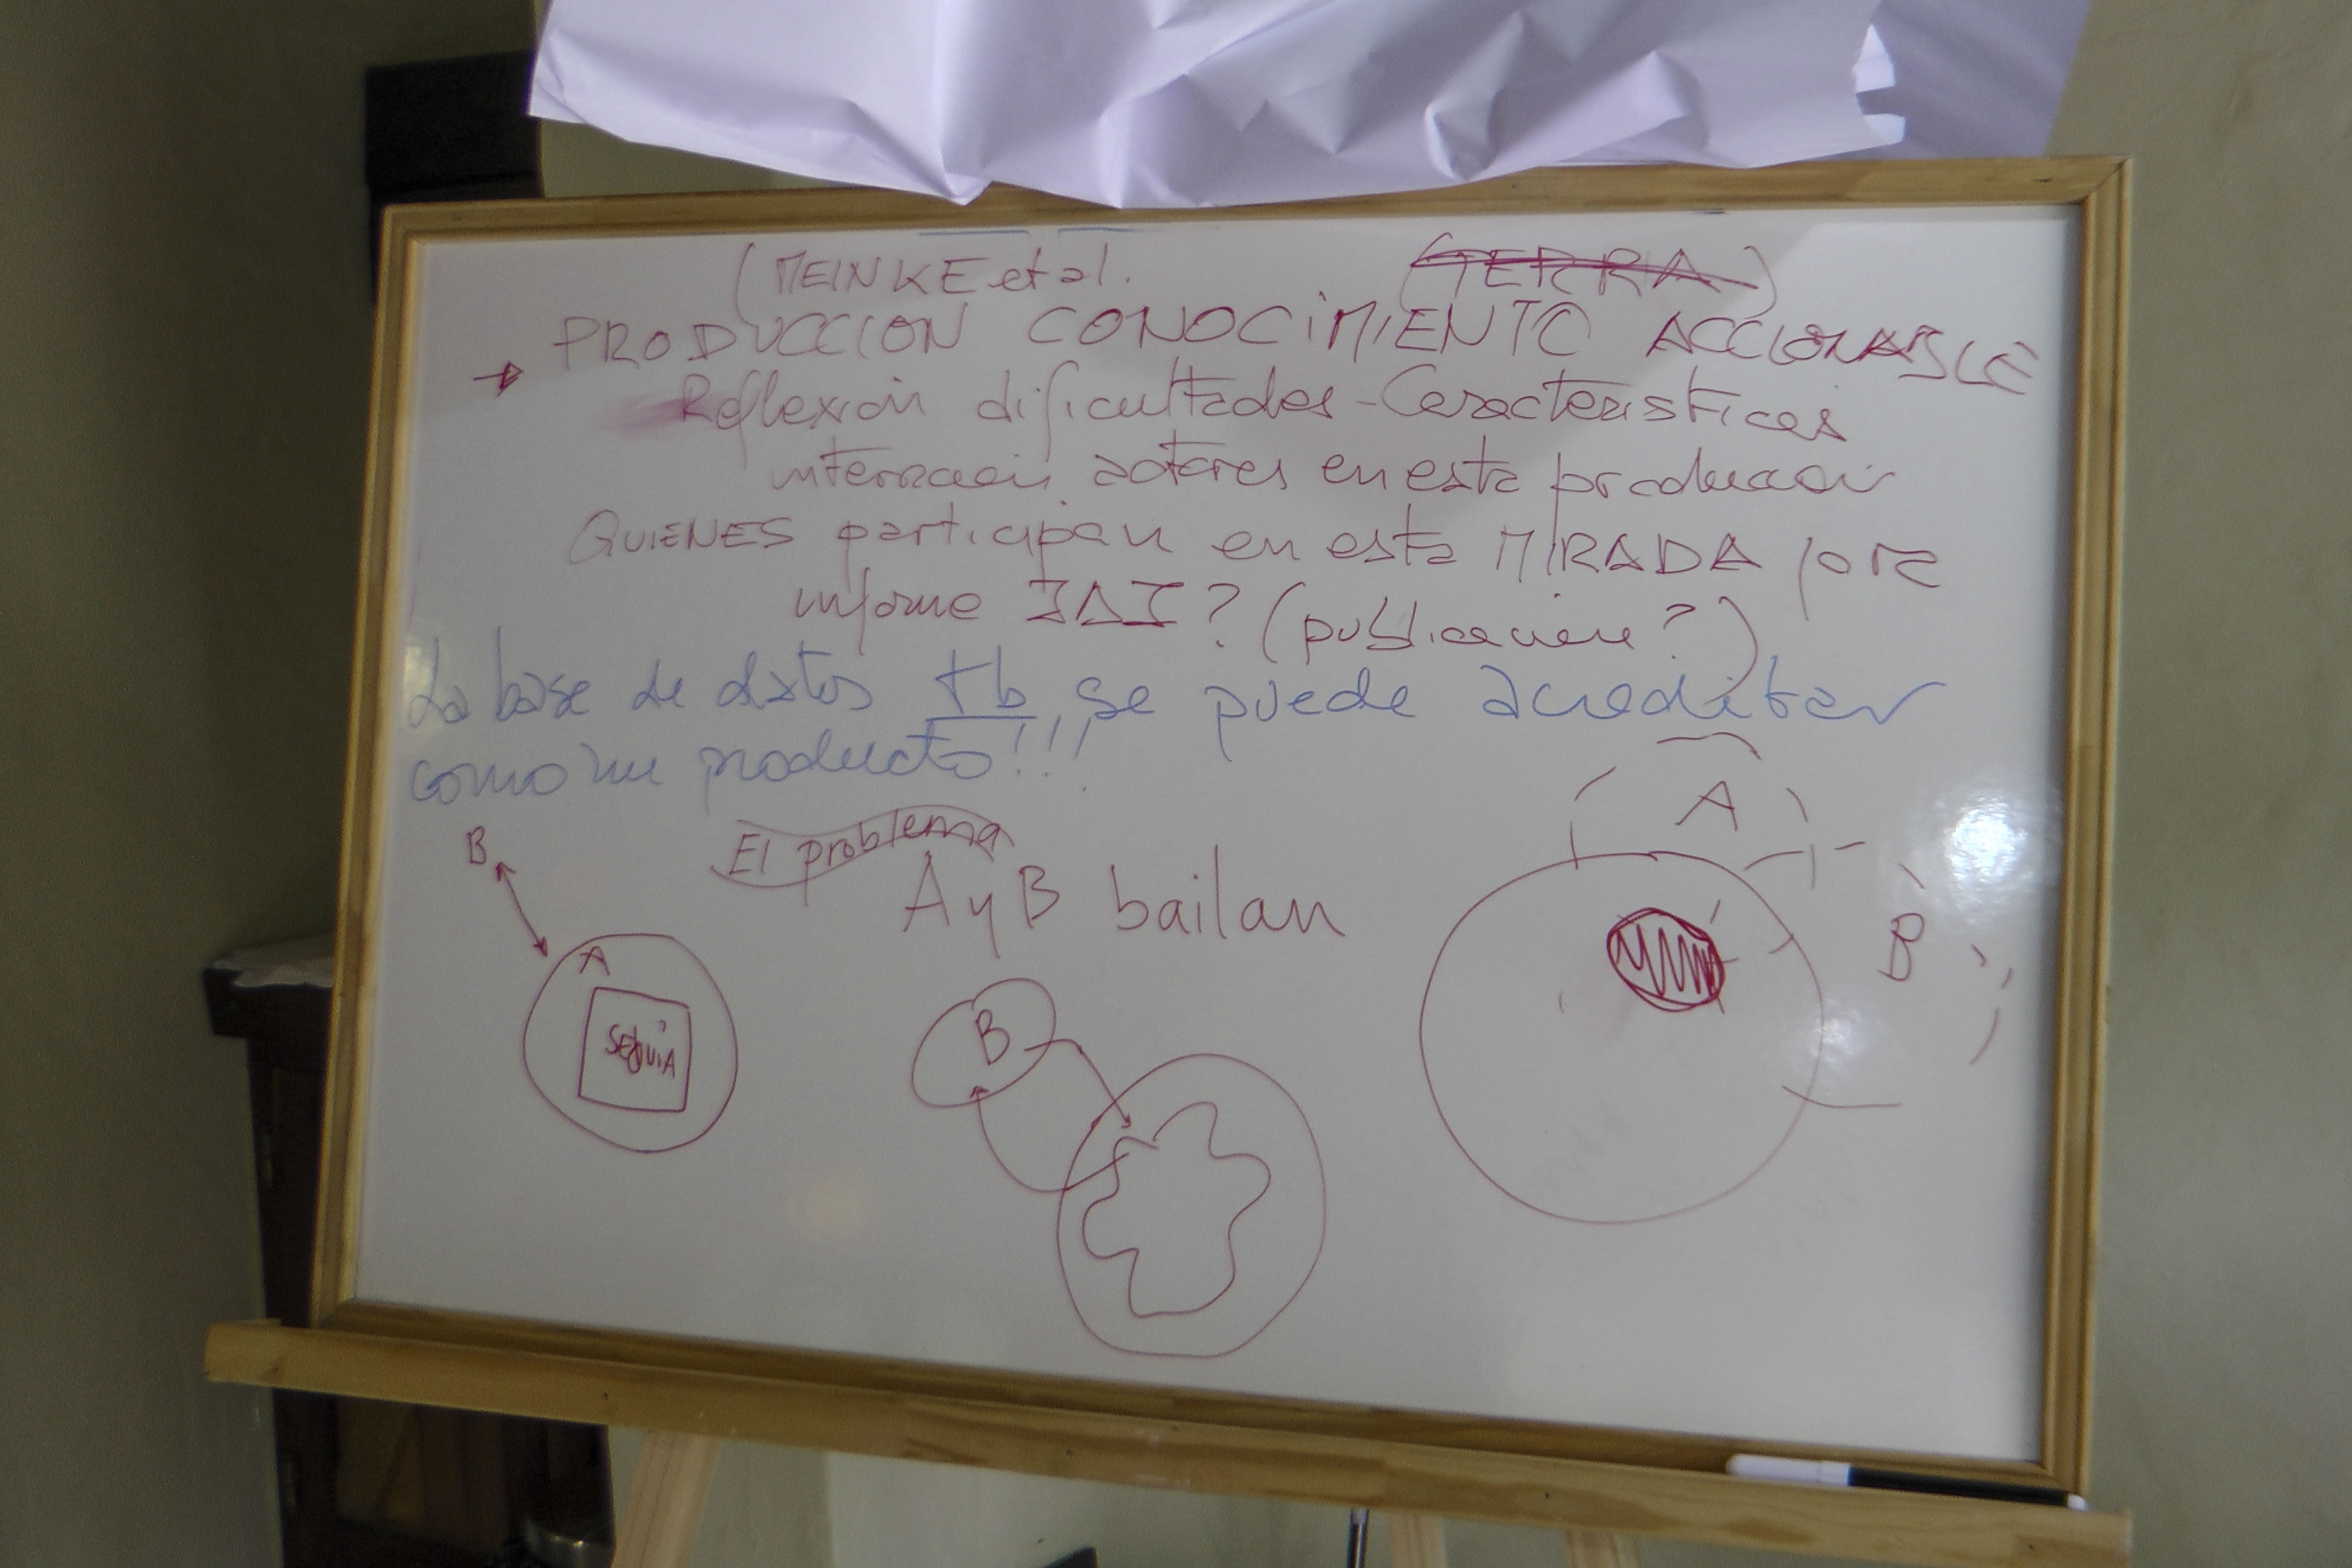 (MEINKE et al. (TERRA)
→ PRODUCCION CONOCIMIENTO ACCIONABLE
Reflexión dificultades - Características
interacción actores en esta producción
QUIENES participan en esta MIRADA para
informe IAI? (publicación?)
La base de datos tb se puede acreditar
como un producto!!!
El problema
A y B bailan
B
A
SEQUIA
B
A
B